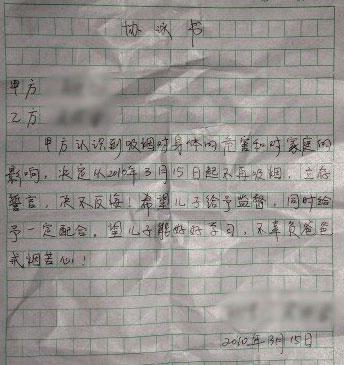 协议书
甲方
乙方
甲方认识到吸烟对身体的危害和对家庭的
影响，决定从2010年3月15日起不再吸烟，立存
誓言，决不反悔！希望儿子给予监督，同时给
予一定配合，望儿子能好好学习，不辜负爸爸
戒烟苦心！
2010年3月15日